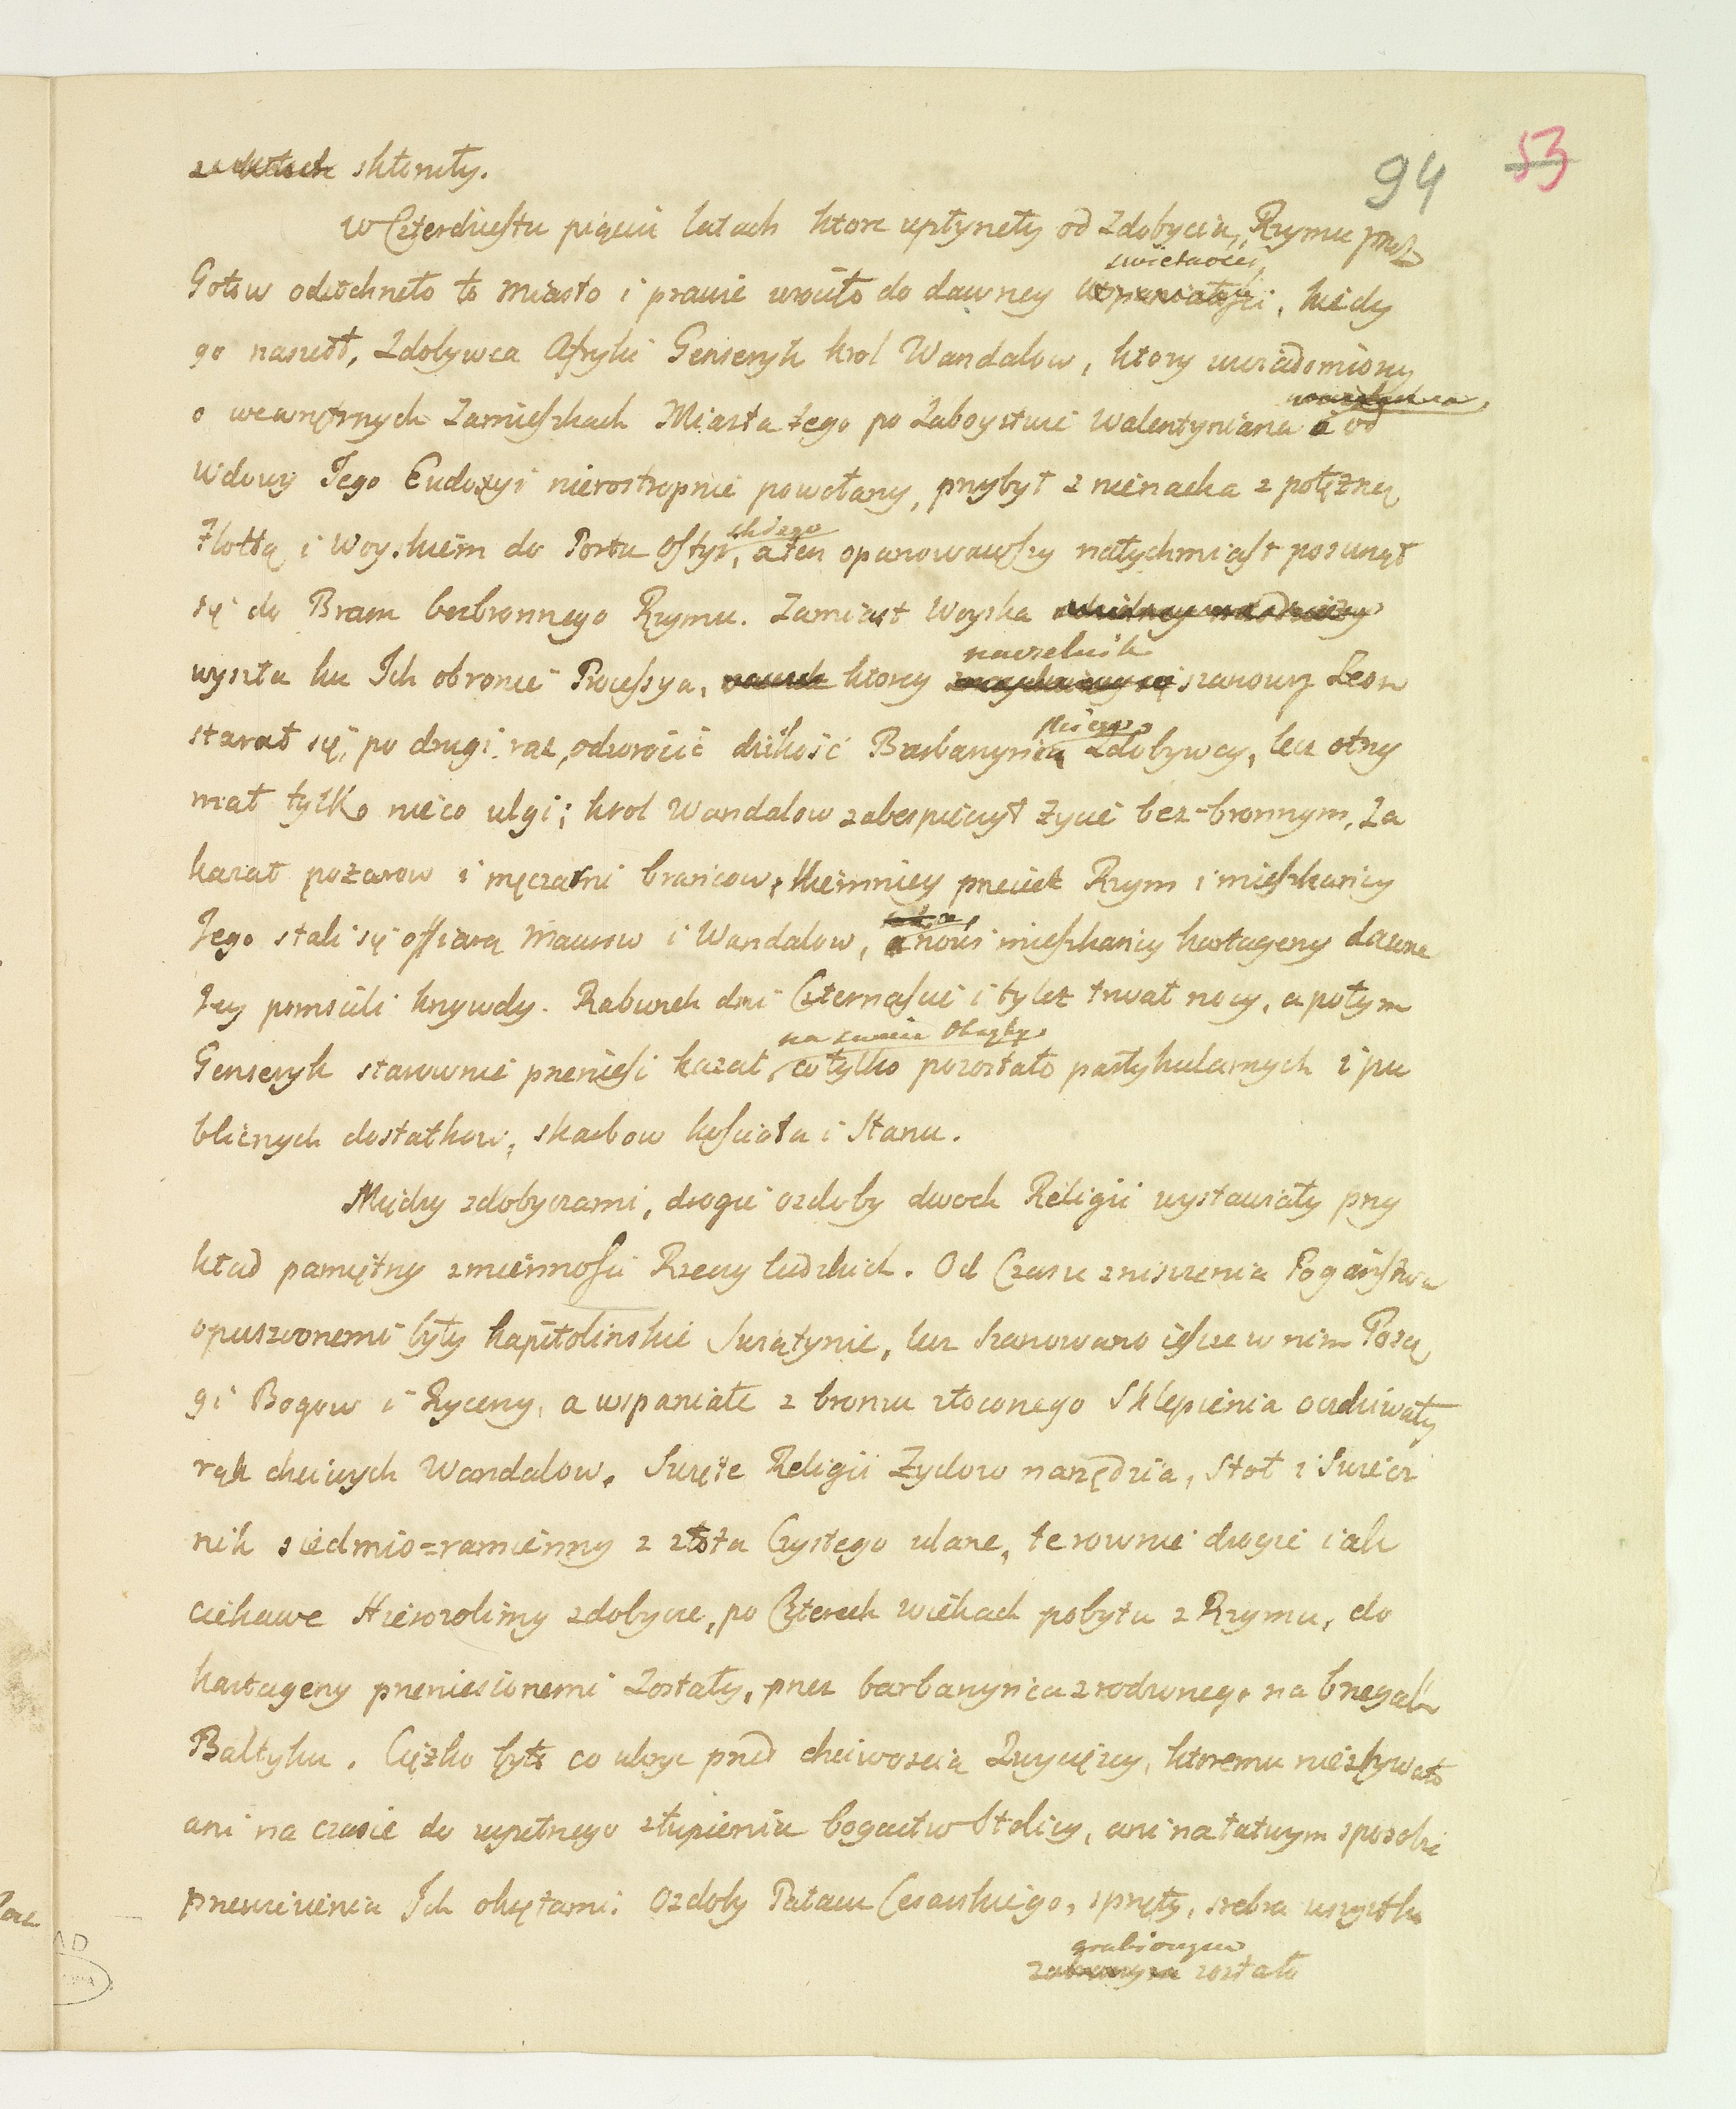 94 53
skłoniły.
w Czterdziestu pięciu latach ktore upłyneły od Zdobycia, Rzymu przez
świetności,
Gotow odetchneło to Miasto i prawie wróciło do dawney wspaniałości, kiedy
go naszedł, Zdobywca Afryki Genseryk krol Wandalow, ktory uwiadomiony
o wewnętrznych Zamieszkach Miasta tego po Zaboystwie Walentyniana a od
wdowy Jego Eudoxyi nieroztropnie powołany, przybył z nienacka z potężną
Flottą i Woyskiem do Portu Ostyi, a ten opanowawszy natychmiast posunął
się do Bram bezbronnego Rzymu. Zamiast Woyska
naczelnik
wyszła ku Ich obronie Processya, ktorey szanowny Leon
starał się, po drugi raz, odwrócić dzikość Barbarzyńca Zdobywcy, lecz otrzy
mał tylko nieco ulgi; krol Wandalow zabespieczył życie bez-bronnym, Za
kazał pożarow i męczarni brańcow, Niemniey przeciek Rzym i mieszkańcy
Jego stali się offiarą Maurow i Wandalow, a nowi mieszkańcy kartageny dawne
Jey pomścili krzywdy. Rabunek dni Czternaście i tyleż trwał nocy, a potym
na swoie Okręty
Genseryk starownie przenieść kazał, co tylko pozostało partykularnych i pu
blicznych dostatkow, skarbow kościoła i Stanu.
Między zdobyczami, drogie ozdoby dwoch Religii wystawiały przy
kład pamiętny zmienności Rzeczy ludzkich. Od Czasu zniszczenia Pogaństwa
opuszczonemi były kapitolinskie Swiątynie, lecz Szanowano ieszcze w nim Posą
gi Bogow i Rycerzy, a wspaniałe z bronzu złoconego Sklepienia oczekiwały
rąk chciwych Wandalow. Swięte Religii Zydow narzędzia, Stoł i Swiecz
nik siedmio=ramienny z złota Czystego ulane, te rownie drogie iak
ciekawe Hierozolimy zdobycze, po Czterech wiekach pobytu z Rzymu, do
kartageny przeniesionemi Zostały, przez barbarzynca zrodzonego na brzegach
Baltyku. Ciężko było co ukryć przed chciwoscia Zwycięzcy, ktoremu niezbywało
ani na czasie do zupełnego złupienia bogactw Stolicy, ani na łatwym sposobie
przewiezienia Ich okrętami: Ozdoby Pałacu Cesarskiego, sprzęty, srebra wszystko
grabionym
zabranym zostało